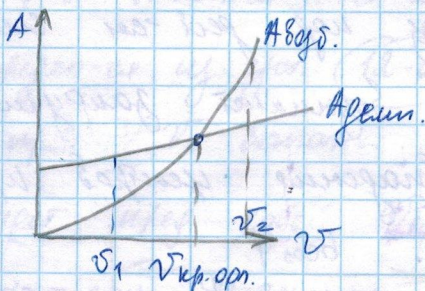 A
Aвозб.
Aдемп.
v₁
vкр.орл.
v₂
v